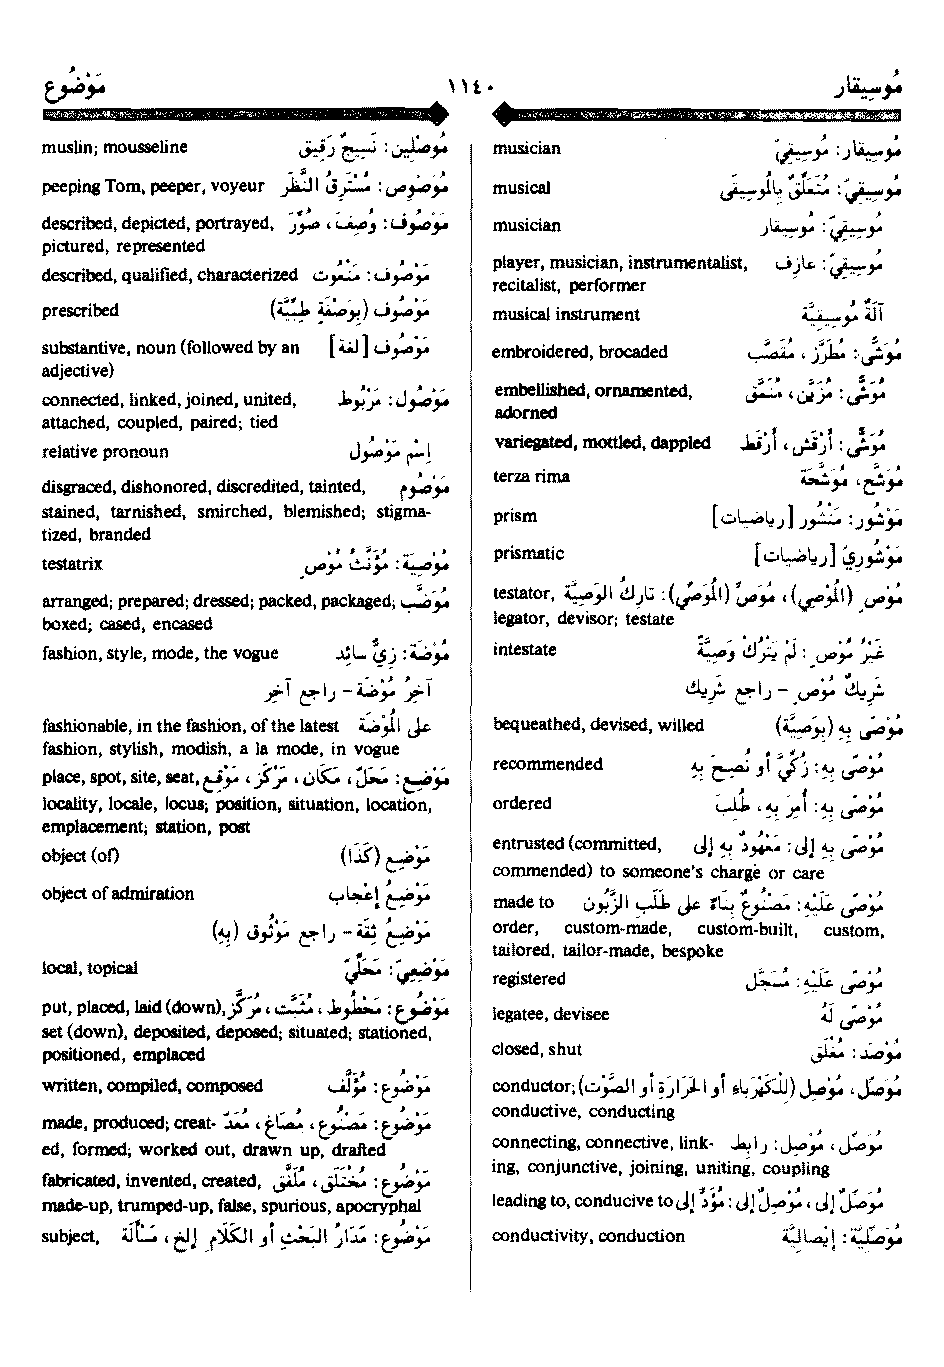 مُوسِيقار ١١٤٠ مَوْضُوع
مُوسِيقار: مُوسِيقِيّ musician
مُوسِيقِيّ: مُتَعَلِّقٌ بِالمُوسِيقَى musical
مُوسِيقِيّ: مُوسِيقار musician
مُوسِيقِيّ: عازِف player, musician, instrumentalist,
recitalist, performer
آلَةٌ مُوسِيقِيَّة musical instrument
مُوَشًّى: مُطَرَّز ، مُقَصَّب embroidered, brocaded
مُوَشًّى: مُزَيَّن ، مُنَمَّق embellished, ornamented,
adorned
مُوَشًّى: أَرْقَش ، أَرْقَط variegated, mottled, dappled
مُوَشَّح ، مُوَشَّحَة terza rima
مَوْشُور: مَنْشُور [رياضيات] prism
مَوْشُورِيّ [رياضيات] prismatic
مُوْصٍ (المُوْصِي) ، مُوَصٍّ (المُوَصِّي): تارِكُ الوَصِيَّة testator,
legator, devisor; testate
غَيْرُ مُوْصٍ: لَمْ يَتْرُكْ وَصِيَّةً intestate
شَرِيكٌ مُوْصٍ - راجع شَرِيك
مُوْصًى بِهِ (بِوَصِيَّة) bequeathed, devised, willed
مُوْصًى بِهِ: زُكِّيَ أو نُصِحَ بِهِ recommended
مُوْصًى بِهِ: أُمِرَ بِهِ ، طُلِبَ ordered
مُوْصًى بِهِ إلى: مَعْهُودٌ بِهِ إلى entrusted (committed,
commended) to someone's charge or care
مُوْصًى عَلَيْهِ: مَصْنُوعٌ بِنَاءً على طَلَبِ الزَّبُون made to
order, custom-made, custom-built, custom,
tailored, tailor-made, bespoke
مُوْصًى عَلَيْهِ: مُسَجَّل registered
مُوْصًى لَهُ legatee, devisee
مُوْصَد: مُغْلَق closed, shut
مُوَصِّل ، مُوْصِل (لِلكَهْرَباءِ أو الحَرَارَةِ أو الصَّوْت) conductor;
conductive, conducting
مُوَصِّل ، مُوْصِل: رابِط connecting, connective, link-
ing, conjunctive, joining, uniting, coupling
مُوَصِّلٌ إلى ، مُوْصِلٌ إلى: مُؤَدٍّ إلى leading to, conducive to
مُوَصِّلِيَّة: إيْصالِيَّة conductivity, conduction
مُوصْلِين: نَسِيجٌ رَقِيق muslin; mousseline
مُوَصْوِص: مُسْتَرِقُ النَّظَر peeping Tom, peeper, voyeur
مَوْصُوف: وُصِفَ ، صُوِّرَ described, depicted, portrayed,
pictured, represented
مَوْصُوف: مَنْعُوت described, qualified, characterized
مَوْصُوف (بِوَصْفَةٍ طِبِّيَّة) prescribed
مَوْصُوف [لغة] substantive, noun (followed by an
adjective)
مَوْصُول: مَرْبُوط connected, linked, joined, united,
attached, coupled, paired; tied
إسْم مَوْصُول relative pronoun
مَوْصُوم disgraced, dishonored, discredited, tainted,
stained, tarnished, smirched, blemished; stigma-
tized, branded
مُوْصِيَة: مُؤَنَّث مُوْصٍ testatrix
مُوَضَّب arranged; prepared; dressed; packed, packaged;
boxed; cased, encased
مُوْضَة: زِيٌّ سائِد fashion, style, mode, the vogue
آخِرُ مُوْضَة - راجع آخِر
على المُوْضَة fashionable, in the fashion, of the latest
fashion, stylish, modish, a la mode, in vogue
مَوْضِع: مَحَلّ ، مَكَان ، مَرْكَز ، مَوْقِع place, spot, site, seat,
locality, locale, locus; position, situation, location,
emplacement; station, post
مَوْضِع (كَذَا) object (of)
مَوْضِعُ إعْجاب object of admiration
مَوْضِعُ ثِقَة - راجع مَوْثُوق (بِهِ)
مَوْضِعِيّ: مَحَلِّيّ local, topical
مَوْضُوع: مَحْطُوط ، مُثَبَّت ، مُرَكَّز put, placed, laid (down),
set (down), deposited, deposed; situated; stationed,
positioned, emplaced
مَوْضُوع: مُؤَلَّف written, compiled, composed
مَوْضُوع: مَصْنُوع ، مُصَاغ ، مُعَدّ made, produced; creat-
ed, formed; worked out, drawn up, drafted
مَوْضُوع: مُخْتَلَق ، مُلَفَّق fabricated, invented, created,
made-up, trumped-up, false, spurious, apocryphal
مَوْضُوع: مَدَارُ البَحْثِ أو الكَلَامِ إلخ ، مَسْأَلَة subject,